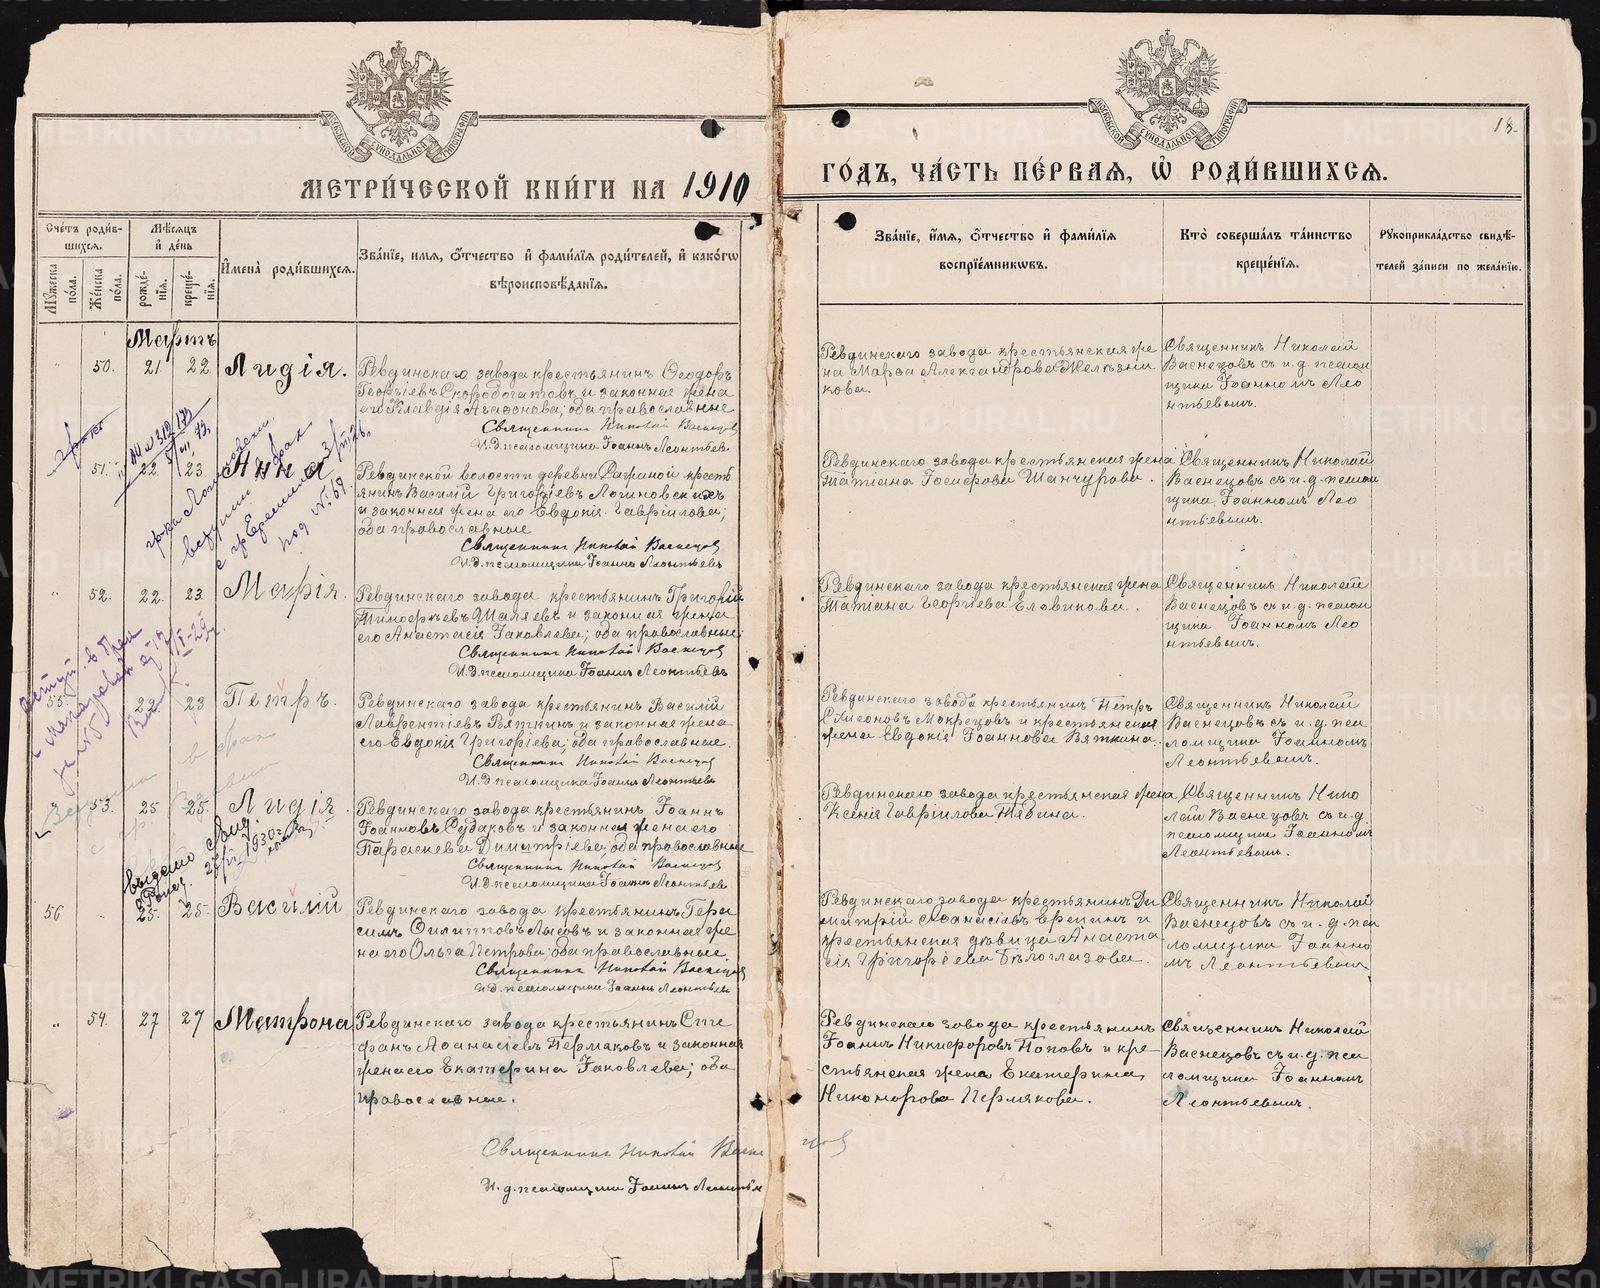 МЕТРИ́ЧЕСКОЙ КНИ́ГИ НА 1910
ГО́ДЪ, ЧА́СТЬ ПЕ́РВАѦ, Ѡ҆ РОДИ́ВШИХСѦ.
18.
Сче́тъ роди́в-
шихсѧ.
Мѣ́сѧцъ
и҆ де́нь
Мꙋ́жеска по́ла.
Же́нска по́ла.
рожде́-
нїѧ.
креще́-
нїѧ.
И҆мена̀ роди́вшихсѧ.
Зва́нїе, имѧ, ѻ҆́тчество и҆ фами́лїѧ роди́телей, и҆ како́гѡ
вѣроисповѣ́данїѧ.
Зва́нїе, и҆́мѧ, ѻ҆́тчество и҆ фами́лїѧ
воспрїе́мникѡвъ.
Кто̀ соверша́лъ та́инство
креще́нїѧ.
Рꙋкоприкла́дство свидѣ́-
телей за́писи по жела́нїю.
Мартъ
50. 21 22 Лидія.
Ревдинскаго завода крестьянинъ Ѳеодоръ
Георгіевъ Скородогатовъ и законная жена
его Клавдія Агаѳонова; оба православные
Священникъ Николай Васнецовъ
И. д. псаломщика Іоаннъ Леонтьевъ
Ревдинскаго завода крестьянская же
на Марѳа Александрова Желѣзни
кова.
Священникъ Николай
Васнецовъ съ и. д. псалом
щика Іоанномъ Лео
нтьевымъ.
51. 22 23 Нина
Ревдинской волости деревни крестъ
янинъ Василій Григоріевъ Логиновскихъ
и законная жена его Евдокія Гавріилова;
оба православные
Священникъ Николай Васнецовъ
И. д. псаломщика Іоаннъ Леонтьевъ
Ревдинскаго завода крестьянская жена
Татіана Іосифова Шанчурова.
Священникъ Николай
Васнецовъ съ и. д. псалом
щика Іоанномъ Лео
нтьевымъ.
" 52. 22. 23 Марія.
Ревдинскаго завода крестьянинъ Григорій
Тимоѳеевъ Шаляевъ и законная жена
его Анастасія Іаковлева; оба православные
Священникъ Николай Васнецовъ
И. д. псаломщика Іоаннъ Леонтьевъ
Ревдинскаго завода крестьянская жена
Татіана Георгіева Еловикова.
Священникъ Николай
Васнецовъ съ и. д. псалом
щика Іоанномъ Лео
нтьевымъ.
55. 22. 23 Петръ.
Ревдинскаго завода крестьянинъ Василій
Лаврентіевъ Вяткинъ и законная жена
его Евдокія Григоріева; оба православные.
Священникъ Николай Васнецовъ
И. д. псаломщика Іоаннъ Леонтьевъ
Ревдинскаго завода крестьянинъ Петръ
Симеоновъ Мокрецовъ и крестьянская
жена Евдокія Іоаннова Вяткина.
Священникъ Николай
Васнецовъ съ и. д. пса
ломщика Іоанномъ
Леонтьевымъ.
53. 25 25. Лидія
Ревдинскаго завода крестьянинъ Іоаннъ
Іоанновъ Судаковъ и законная жена его
Параскева Димитріева; оба православные
Священникъ Николай Васнецовъ
И. д. псаломщика Іоаннъ Леонтьевъ
Ревдинскаго завода крестьянская жена
Ксенія Гавріилова Тябина.
Священникъ Нико
лай Васнецовъ съ и. д.
псаломщика Іоанномъ
Леонтьевымъ.
выдано свид.
56 25. 25. Василій
Ревдинскаго завода крестьянинъ Гера
симъ Филипповъ Лысовъ и законная же
на его Ольга Петрова; оба православные.
Священникъ Николай Васнецовъ
И. д. псаломщика Іоаннъ Леонтьевъ
Ревдинскаго завода крестьянинъ Ди
митрій Аѳанасіевъ и
крестьянская дѣвица Анаста
сія Григоріева Бѣлоглазова.
Священникъ Николай
Васнецовъ съ и. д. пса
ломщика Іоанно
мъ Леонтьевымъ
" 54. 27 27 Матрона
Ревдинскаго завода крестьянинъ Сте
фанъ Аѳанасіевъ Пермяковъ и законная
жена его Екатерина Іаковлева; оба
православные.
Священникъ Николай Васнецовъ
И. д. псаломщика Іоаннъ Леонтьевъ
Ревдинскаго завода крестьянинъ
Іоаннъ Никифоровъ Поповъ и кре
стьянская жена Екатерина
Никанорова Пермякова.
Священникъ Николай
Васнецовъ съ и. д. пса
ломщика Іоанномъ
Леонтьевымъ.
METRIKI.GASO-URAL.RU